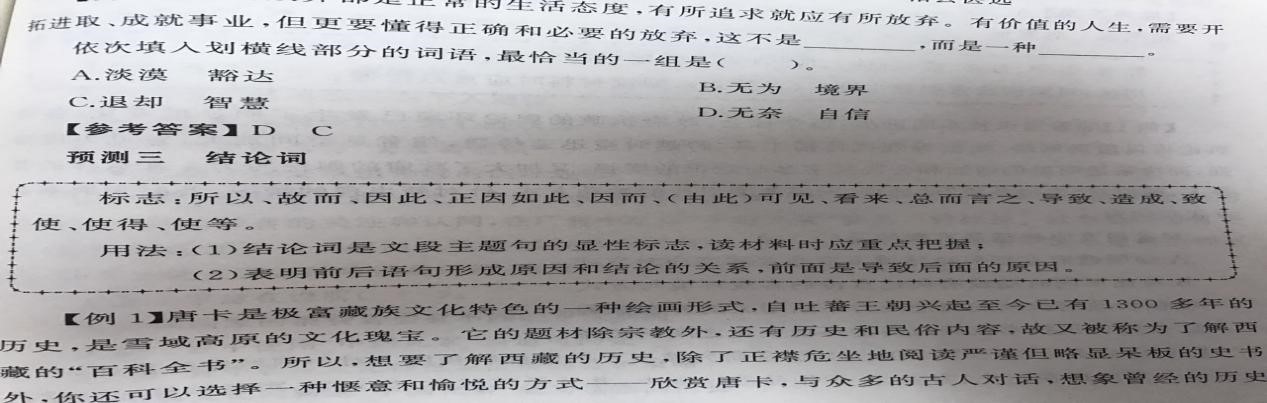 是正常的生活态度，有所追求就应有所放弃。有价值的人生，需要开
拓进取、成就事业，但更要懂得正确和必要的放弃，这不是________，而是一种________。
依次填入划横线部分的词语，最恰当的一组是(　　)。
A.淡漠　豁达　　B.无为　境界
C.退却　智慧　　D.无奈　自信
【参考答案】D　C
预测三　结论词
标志：所以、故而、因此、正因如此、因而、(由此)可见、看来、总而言之、导致、造成、致
使、使得、使等。
用法：(1)结论词是文段主题句的显性标志，读材料时应重点把握；
(2)表明前后语句形成原因和结论的关系，前面是导致后面的原因。
【例 1】唐卡是极富藏族文化特色的一种绘画形式，自吐蕃王朝兴起至今已有 1300 多年的
历史，是雪域高原的文化瑰宝。它的题材除宗教外，还有历史和民俗内容，故又被称为了解西
藏的“百科全书”。所以，想要了解西藏的历史，除了正襟危坐地阅读严谨但略显呆板的史书
外，你还可以选择一种惬意和愉悦的方式——欣赏唐卡，与众多的古人对话，想象曾经的历史